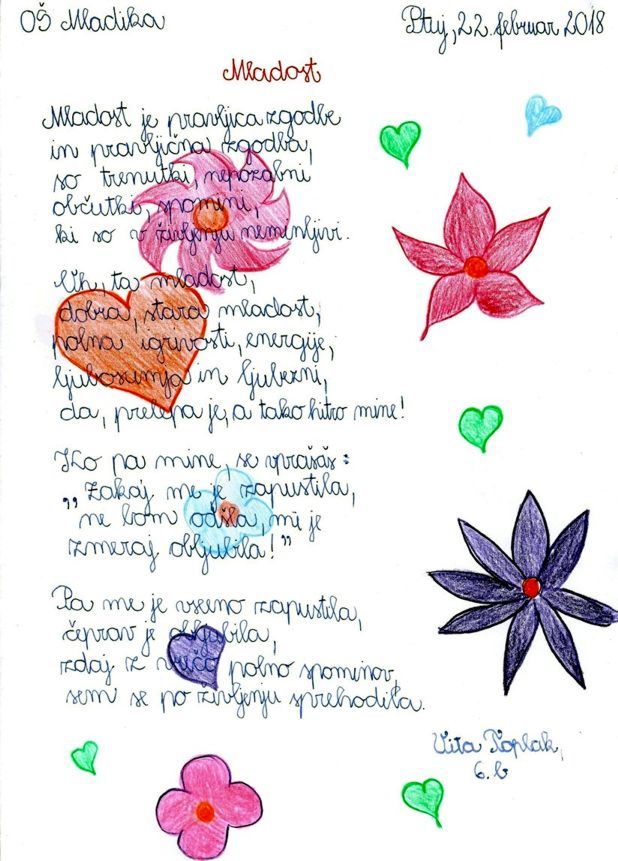 OŠ Mladika
Ptuj, 22. februar 2018
Mladost
Mladost je pravljica zgodbe
in pravljična zgodba,
so trenutki, nepozabni
občutki, spomini,
ki so v življenju neminljivi.
Uh, ta mladost,
dobra, stara mladost,
polna igrivosti, energije,
ljubosumja in ljubezni,
da, prelepa je, a tako hitro mine!
Ko pa mine, se vprašaš:
„Zakaj me je zapustila,
ne bom odšla, mi je
zmeraj obljubila!”
Pa me je vseeno zapustila,
čeprav je obljubila,
zdaj z vrečo polno spominov,
sem se po življenju sprehodila.
Vita Toplak,
6. b